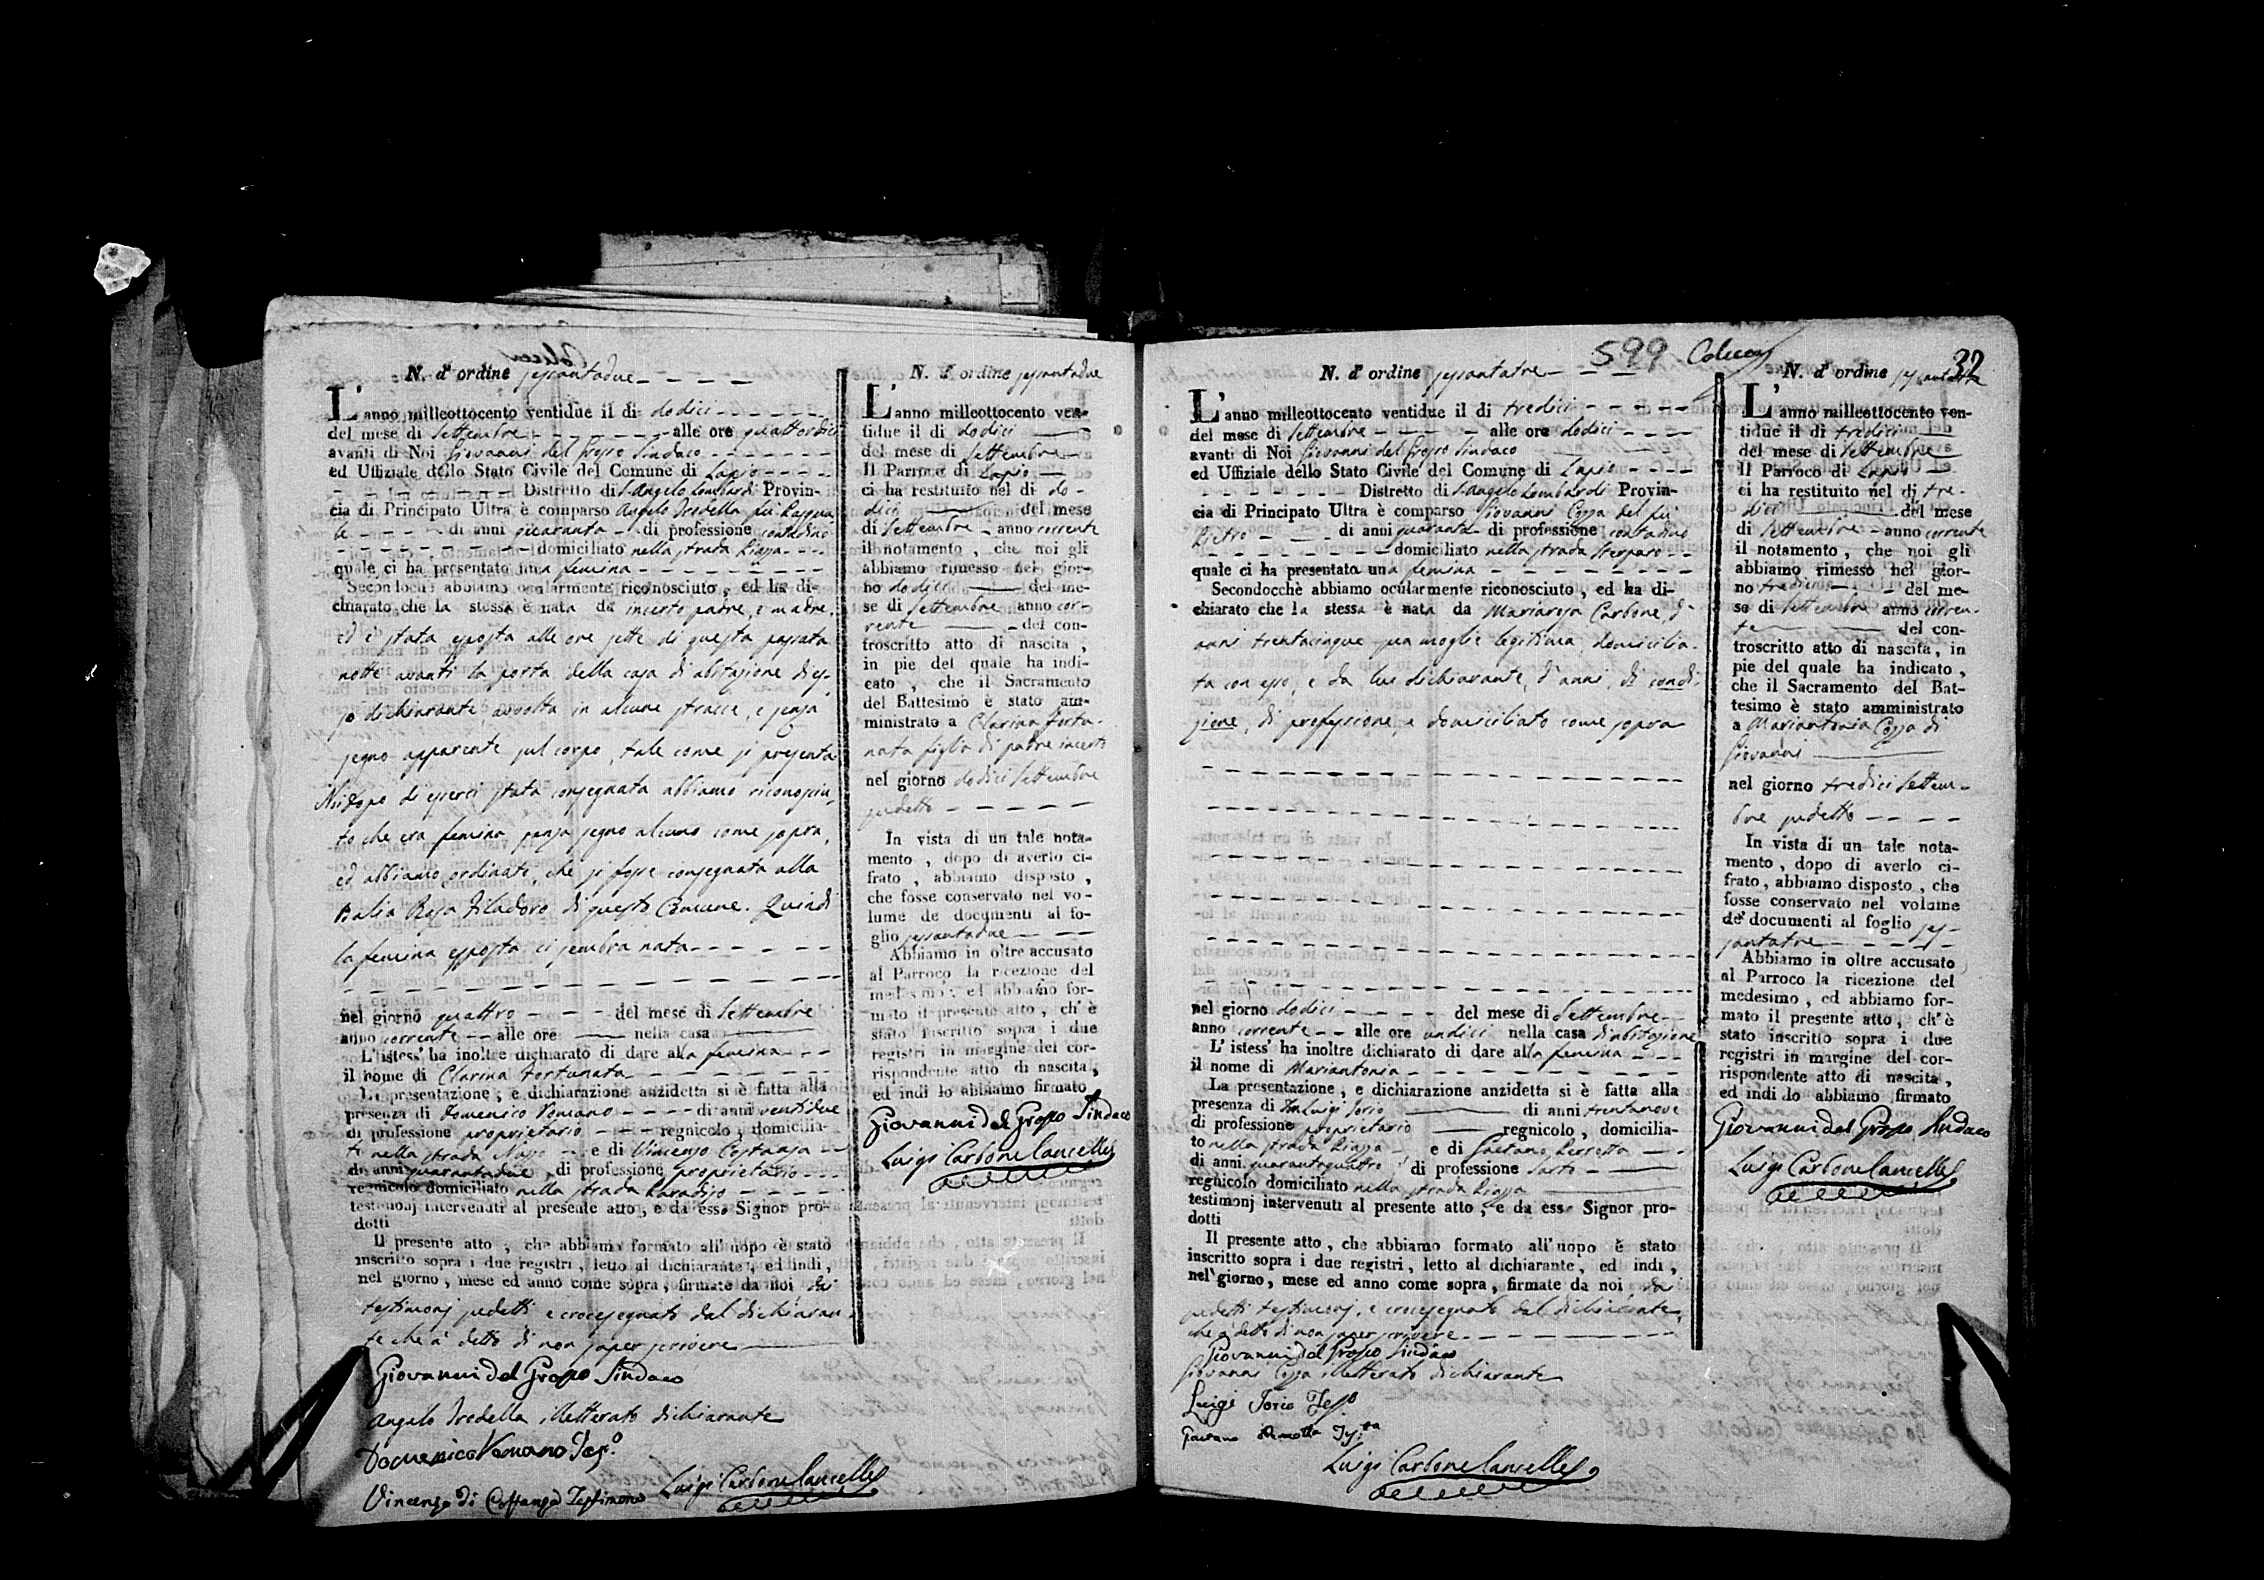 N. d' ordine sessantadue
L'anno milleottocento ventidue il di dodici
del mese di Settembre alle ore quattordici
avanti di Noi Giovanni del Grosso Sindaco
ed Uffiziale dello Stato Civile del Comune di Lapio
Distretto di S. Angelo Lombardi Provin-
cia di Principato Ultra è comparso Angelo Irodella fu Pasqua
le di anni quaranta di professione contadino
domiciliato nella strada Piazza
quale ci ha presentato una femina
Secondochè abbiamo ocularmente riconosciuto, ed ha di-
chiarato che la stessa è nata da incerto padre, e madre,
ed è stata esposta alle ore sette di questa passata
notte avanti la porta della casa di abitazione di es-
so dichiarante, avvolta in alcune stracce, e senza
segno apparente sul corpo, tale come si presenta
Noi dopo di esserci stata consegnata abbiamo riconosciu
to che era femina, senza segno alcuno come sopra,
ed abbiamo ordinate, che si fosse consegnata alla
Balia Rosa Filadoro di questo Comune. Quindi
la femina esposta ci sembra nata
nel giorno quattro del mese di Settembre
anno corrente alle ore nella casa
L'istess' ha inoltre dichiarato di dare alla femina
il nome di Clarina Fortunata
La presentazione, e dichiarazione anzidetta si è fatta alla
presenza di Domenico Romano di anni ventidue
di professione proprietario regnicolo, domicilia-
to nella strada e di Vincenzo Costanza
di anni quarantadue di professione proprietario
regnicolo domiciliato nella strada Paradiso
testimonj intervenuti al presente atto, e da esso Signor pro-
dotti
Il presente atto, che abbiamo formato all'uopo è stato
inscritto sopra i due registri, letto al dichiarante, ed indi,
nel giorno, mese ed anno come sopra, firmate da noi dai
testimonj sudetti e crocesegnato dal dichiaran
te che à detto di non saper scrivere
Giovanni del Grosso Sindaco
Angelo Irodella illetterato dichiarante
Domenico Romano Tes.o
Vincenzo di Costanza Testimonio
Luigi Carbone Cancell.e
N. d' ordine sessantadue
L'anno milleottocento ven-
tidue il di dodici
del mese di Settembre
Il Parroco di Lapio
ci ha restituito nel di do-
dici del mese
di Settembre anno corrente
il notamento, che noi gli
abbiamo rimesso nel gior-
no dodici del me-
se di Settembre anno cor-
rente del con-
troscritto atto di nascita,
in pie del quale ha indi-
cato, che il Sacramento
del Battesimo è stato am-
ministrato a Clarina Fortu-
nata figlia di padre incerto
nel giorno dodici Settembre
sudetto
In vista di un tale nota-
mento, dopo di averlo ci-
frato, abbiamo disposto,
che fosse conservato nel vo-
lume de documenti al fo-
glio sessantadue
Abbiamo in oltre accusato
al Parroco la ricezione del
medesimo, ed abbiamo for-
mato il presente atto, ch' è
stato inscritto sopra i due
registri in margine del cor-
rispondente atto di nascita,
ed indi lo abbiamo firmato
Giovanni del Grosso Sindaco
Luigi Carbone Cancell.e
599 Colucci
32
N. d' ordine sessantatre
L'anno milleottocento ventidue il di tredici
del mese di Settembre alle ore dodici
avanti di Noi Giovanni del Grosso Sindaco
ed Uffiziale dello Stato Civile del Comune di Lapio
Distretto di S. Angelo Lombardi Provin-
cia di Principato Ultra è comparso Giovanni Cozza del fu
Pietro di anni quaranta di professione contadino
domiciliato nella strada
quale ci ha presentato una femina
Secondocchè abbiamo ocularmente riconosciuto, ed ha di-
chiarato che la stessa è nata da Mariarosa Carbone, d'
anni trentacinque sua moglie legitima, domicilia-
ta con esso, e da lui dichiarante, d'anni, di condi-
zione, di professione, e domiciliato come sopra
nel giorno dodici del mese di Settembre
anno corrente alle ore undici nella casa di abitazione
L' istess' ha inoltre dichiarato di dare alla femina
il nome di Mariantonia
La presentazione, e dichiarazione anzidetta si è fatta alla
presenza di Luigi Iorio di anni trentanove
di professione proprietario regnicolo, domicilia-
to nella strada Piazza e di Gaetano
di anni quarantaquattro di professione Sarto
regnicolo domiciliato nella strada Piazza
testimonj intervenuti al presente atto, e da esso Signor pro-
dotti
Il presente atto, che abbiamo formato all'uopo è stato
inscritto sopra i due registri, letto al dichiarante, ed indi,
nel giorno, mese ed anno come sopra, firmate da noi dai
sudetti testimonj, e crocesegnato dal dichiarante,
che à detto di non saper scrivere
Giovanni del Grosso Sindaco
Giovanni Cozza illetterato dichiarante
Luigi Iorio Tes.o
Gaetano
Luigi Carbone Cancell.e
N. d' ordine sessantatre
L'anno milleottocento ven-
tidue il di tredici
del mese di Settembre
Il Parroco di Lapio
ci ha restituito nel di tre-
dici del mese
di Settembre anno corrente
il notamento, che noi gli
abbiamo rimesso nel gior-
no tredici del me-
se di Settembre anno corren-
te del con-
troscritto atto di nascita, in
pie del quale ha indicato,
che il Sacramento del Bat-
tesimo è stato amministrato
a Mariantonia Cozza di
Giovanni
nel giorno tredici Settem-
bre sudetto
In vista di un tale nota-
mento, dopo di averlo ci-
frato, abbiamo disposto, che
fosse conservato nel volume
de' documenti al foglio ses-
santatre
Abbiamo in oltre accusato
al Parroco la ricezione del
medesimo, ed abbiamo for-
mato il presente atto, ch' è
stato inscritto sopra i due
registri in margine del cor-
rispondente atto di nascita,
ed indi lo abbiamo firmato
Giovanni del Grosso Sindaco
Luigi Carbone Cancell.e